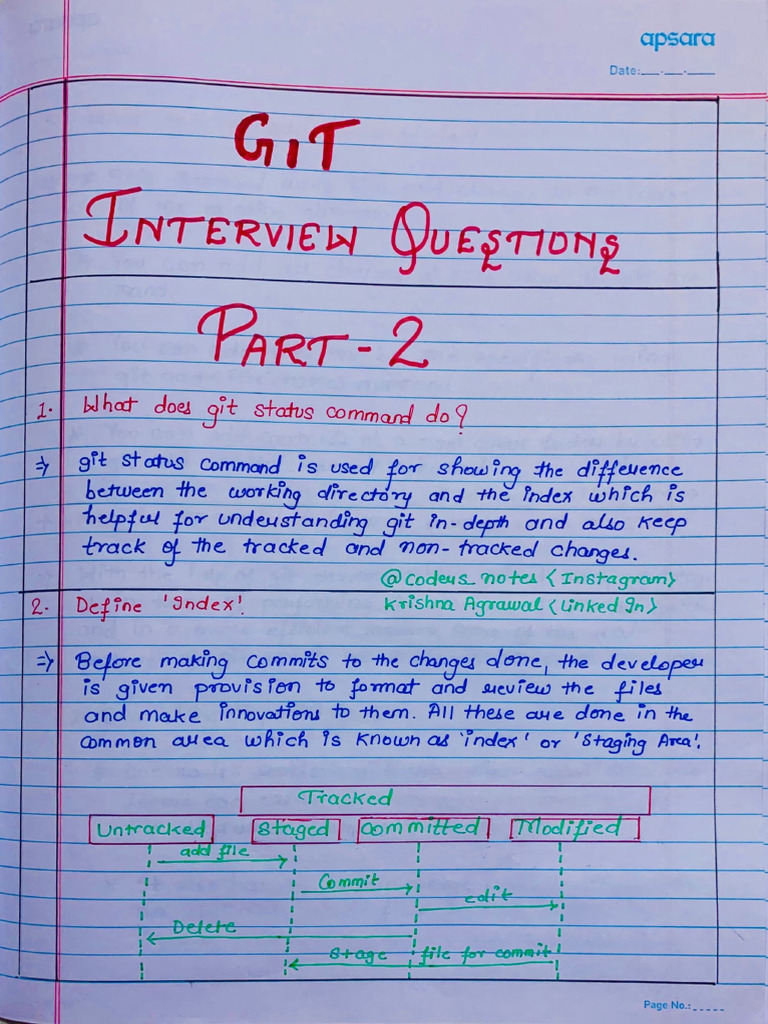 apsara
Date:__.__.__
GIT
INTERVIEW QUESTIONS
PART-2
1. What does git status command do?
⇒ git status command is used for showing the difference
between the working directory and the index which is
helpful for understanding git in-depth and also keep
track of the tracked and non-tracked changes.
@codeus_notes <Instagram>
2. Define 'Index'.
Krishna Agrawal <Linked In>
⇒ Before making commits to the changes done, the developer
is given provision to format and review the files
and make innovations to them. All these are done in the
common area which is known as 'index' or 'Staging Area'.
Tracked
Untracked Staged Committed Modified
add file
Commit
edit
Delete
stage file for commit
Page No.:_____